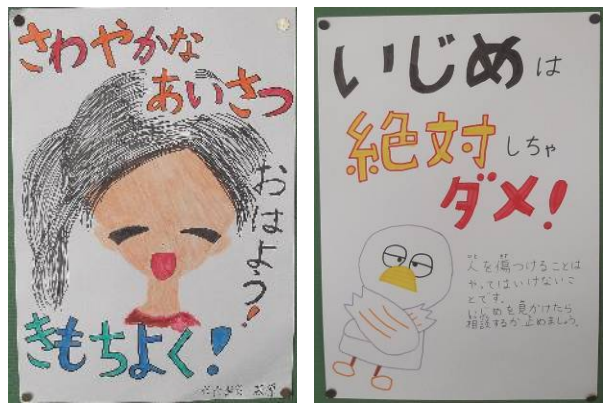 さわやかな
あいさつ
おはよう!
きもちよく!
いじめは
絶対しちゃ
ダメ!
人を傷つけることは
やってはいけないこ
とです。
いじめを見かけたら
相談するか止めましょう。